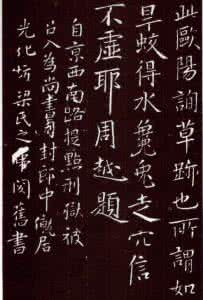 此歐陽詢草跡也所謂如
旱蛟得水毚兔走穴信
不虛耶周越題
自京西南路提點刑獄被
召入為尚書封郎中僦居
光化坊梁民之閱舊書